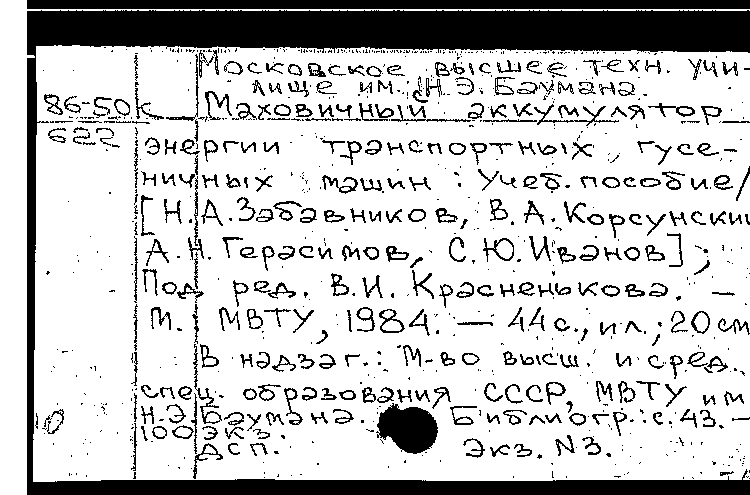 Московское высшее техн. учи-
лище им. Н.Э. Баумана.
86-50к Маховичный аккумулятор
622 энергии транспортных гусе-
ничных машин : Учеб. пособие/
[Н.А.Забавников, В.А.Корсунский
А.Н.Герасимов, С.Ю.Иванов] ;
Под ред. В.И. Красненькова. —
М. : МВТУ, 1984. — 44 с., ил.; 20 см
В надзаг.: М-во высш. и сред.
спец. образования СССР, МВТУ им
Н.Э.Баумана. Библиогр.: с. 43. —
10 100 экз.
ДСП. Экз. N3.